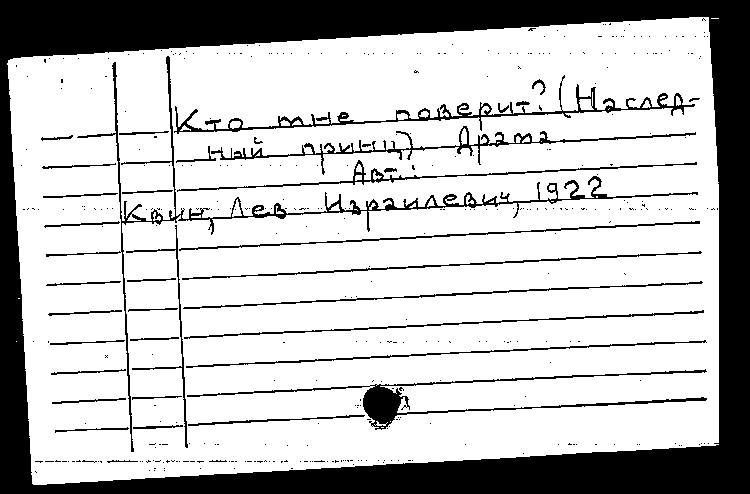 Кто мне поверит? (Наслед-
ный принц). Драма.
Авт.:
Квин, Лев Израилевич, 1922